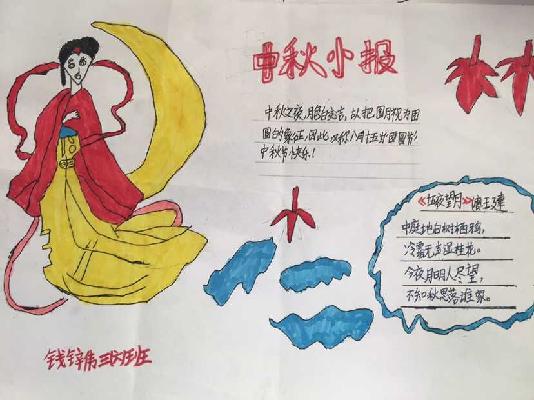 中秋小报
中秋之夜,月色皎洁,古人把圆月视为团
圆的象征,因此,又称八月十五为团圆节,
中秋节快乐!
《十五夜望月》唐王建
中庭地白树栖鸦,
冷露无声湿桂花。
今夜月明人尽望,
不知秋思落谁家。
钱锌
班